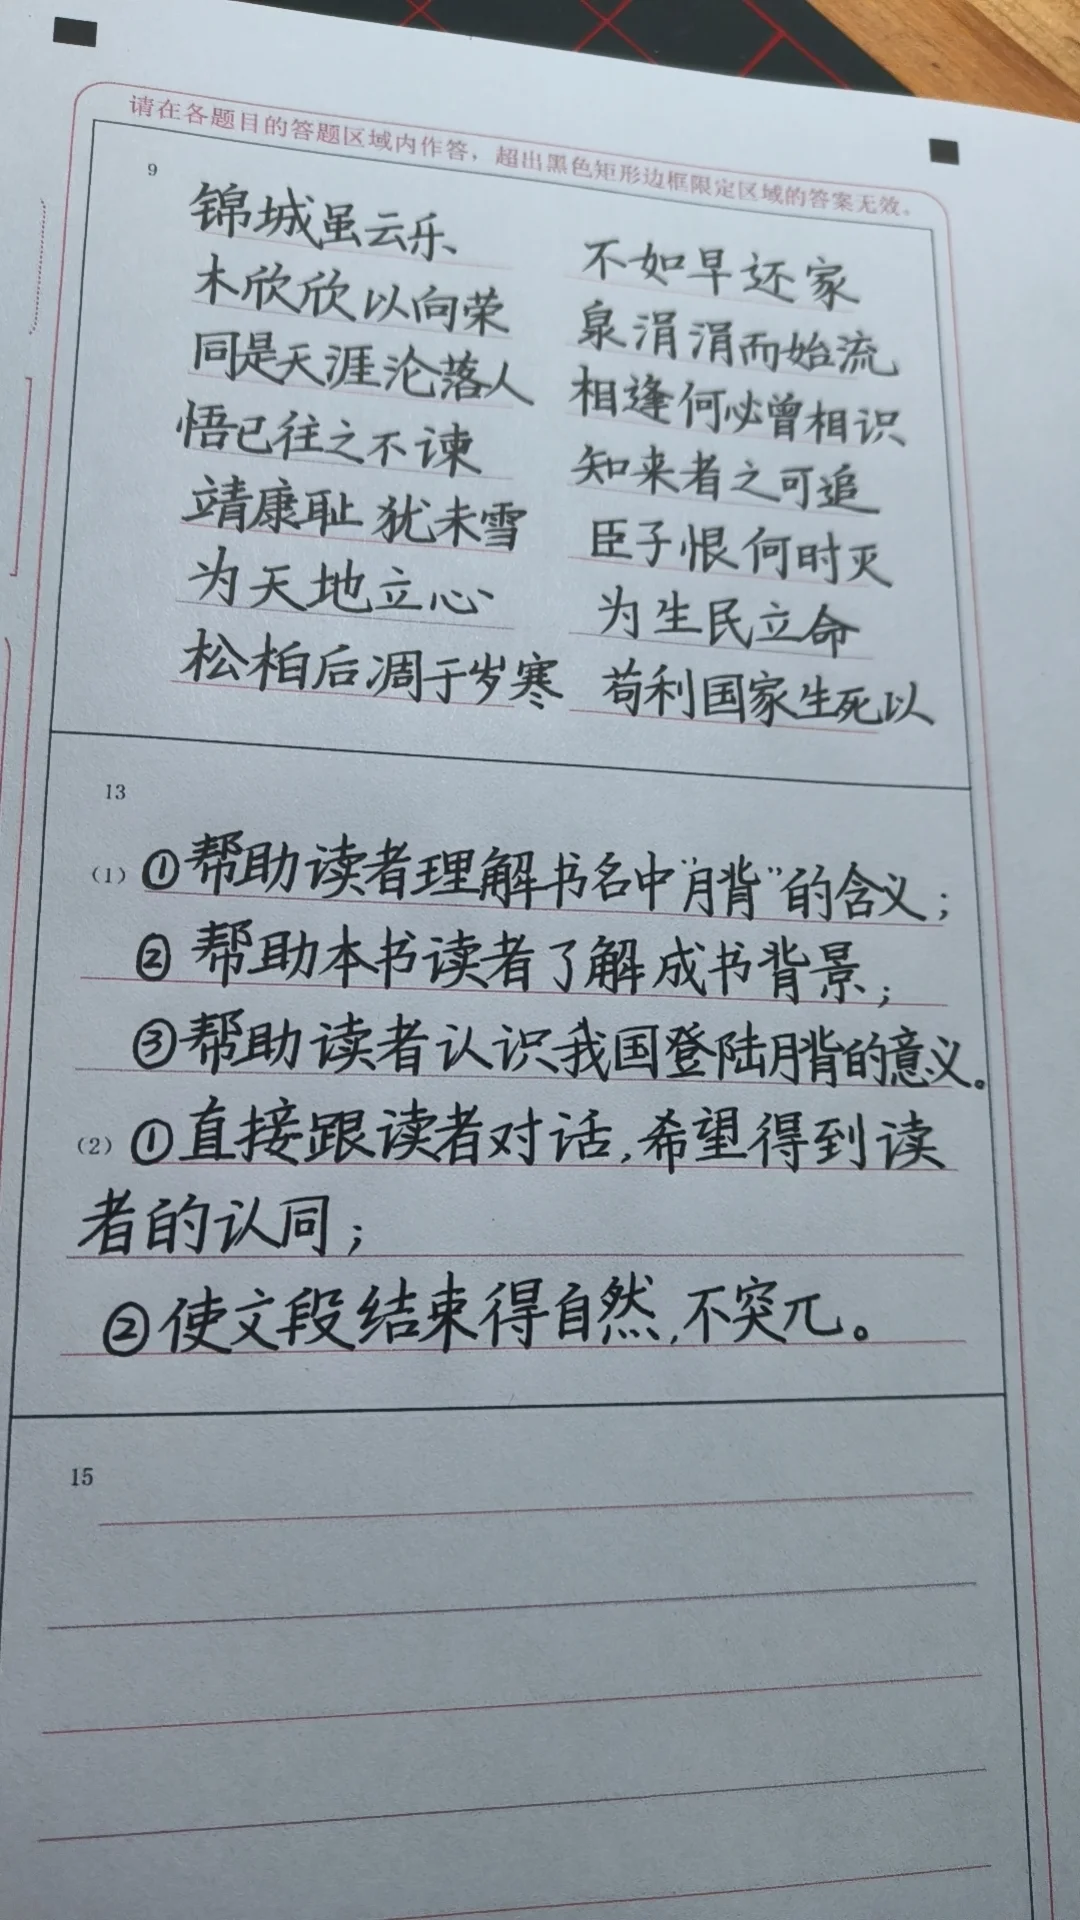 请在各题目的答题区域内作答，超出黑色矩形边框限定区域的答案无效。
9
锦城虽云乐、 不如早还家
木欣欣以向荣 泉涓涓而始流
同是天涯沦落人 相逢何必曾相识
悟已往之不谏 知来者之可追
靖康耻犹未雪 臣子恨何时灭
为天地立心 为生民立命
松柏后凋于岁寒 苟利国家生死以
13
(1) ①帮助读者理解书名中“月背”的含义；
②帮助本书读者了解成书背景；
③帮助读者认识我国登陆月背的意义。
(2) ①直接跟读者对话，希望得到读
者的认同；
②使文段结束得自然，不突兀。
15